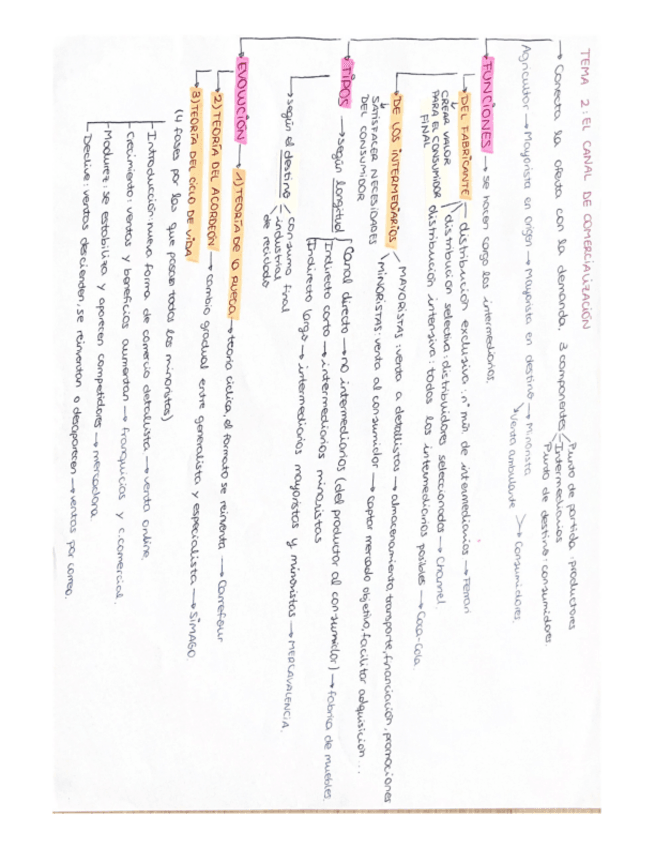 TEMA 2: EL CANAL DE COMERCIALIZACIÓN
→ Conecta la oferta con la demanda. 3 componentes
Punto de partida: productores
Intermediarios
Punto de destino: consumidores.
Agricultor → Mayorista en origen → Mayorista en destino → Minorista
Venta ambulante
→ Consumidores.
FUNCIONES → se hacen cargo los intermediarios.
DEL FABRICANTE
distribución exclusiva: nº min de intermediarios → Ferrari
distribución selectiva: distribuidores seleccionados → Channel.
distribución intensiva: todos los intermediarios posibles → Coca-Cola.
CREAR VALOR
PARA EL CONSUMIDOR
FINAL
DE LOS INTERMEDIARIOS
MAYORISTAS: venta a detallistas → almacenamiento, transporte, financiación, promociones
MINORISTAS: venta al consumidor → captar mercado objetivo, facilitar adquisición...
SATISFACER NECESIDADES
DEL CONSUMIDOR
TIPOS → según longitud
Canal directo → no intermediarios (del productor al consumidor) → fabrica de muebles.
Indirecto corto → intermediarios minoristas
Indirecto largo → intermediarios mayoristas y minoristas → MERCAVALENCIA.
→ según el destino
consumo final
industrial
de reciclado
EVOLUCIÓN → 1) TEORÍA DE LA RUEDA → teoría cíclica, el formato se reinventa → Carrefour
2) TEORÍA DEL ACORDEÓN → cambio gradual entre generalista y especialista → SIMAGO.
3) TEORÍA DEL CICLO DE VIDA
(4 fases por las que pasan todos los minoristas)
- Introducción: nueva forma de comercio detallista → venta online.
- Crecimiento: ventas y beneficios aumentan → franquicias y c.comercial.
- Madurez: se estabiliza y aparecen competidores → mercadona.
- Declive: ventas descienden, se reinventan o desaparecen → ventas por correo.